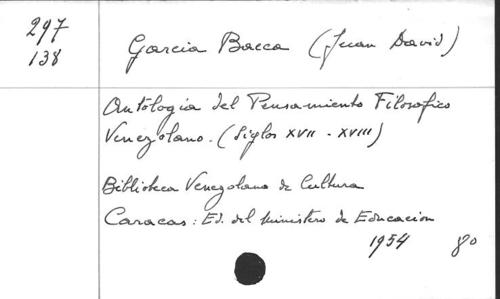 297
138
Garcia Bacca (Juan David)
Antologia del Pensamiento Filosofico
Venezolano. (Siglos XVII - XVIII)
Biblioteca Venezolana de Cultura
Caracas: Ed. del Ministero de Educacion
1954 80